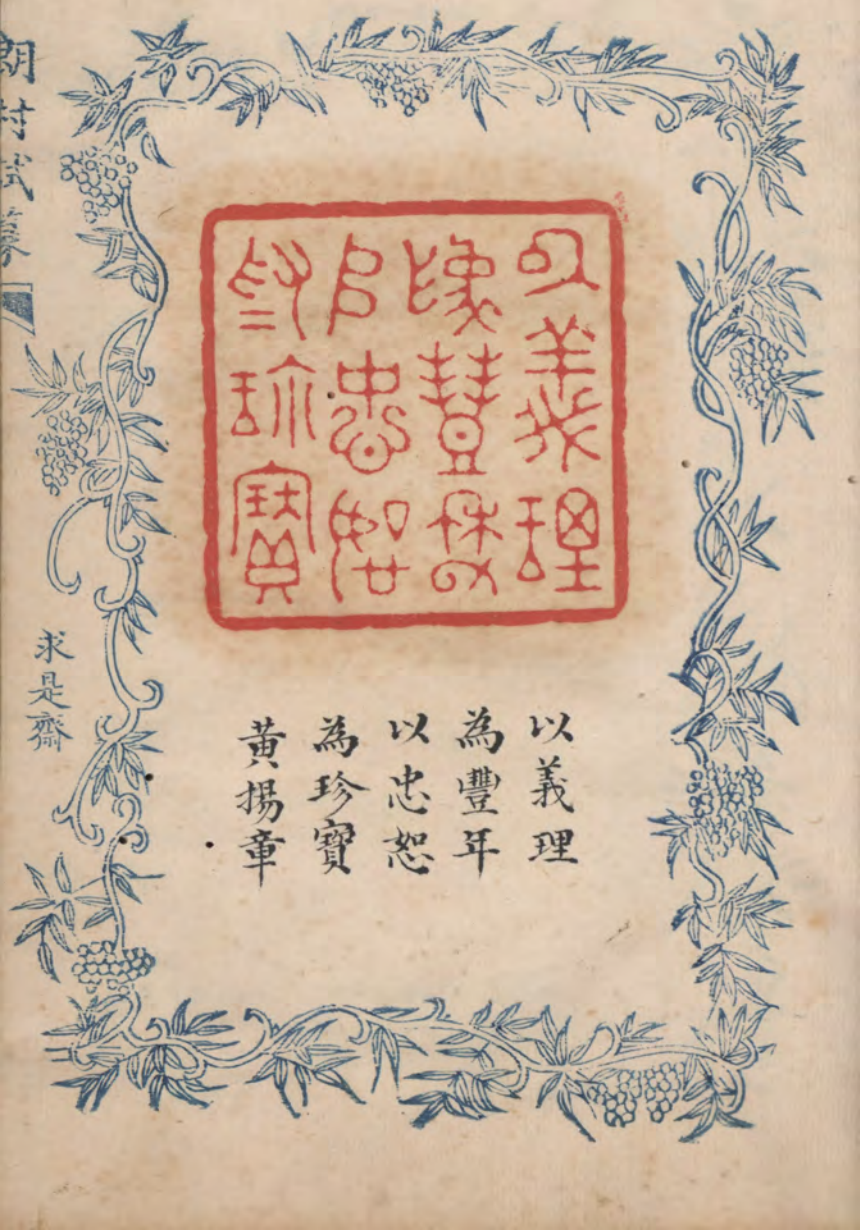 以義理
為豐年
以忠恕
為珍寶
以義理
為豐年
以忠恕
為珍寶
黃揚章
朗村試篆
求是齋